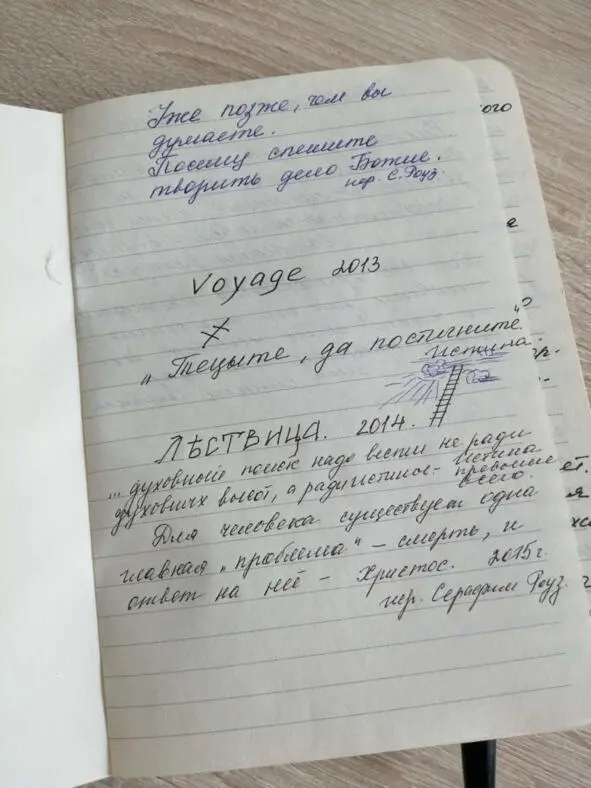 Уже позже, чем вы
думаете.
Посему спешите
творить дело Божие.
иер. С. Роуз.
Voyage 2013
„Тецыте, да постигните"
Истина.
ЛѢСТВИЦА. 2014.
... духовный поиск надо вести не ради
духовных высот, а ради истины - Истина
превыше
всего.
Для человека существует одна
главная „проблема" – смерть, и
ответ на неё – Христос. 2015г.
иер. Серафим Роуз.
ого
е
гр.
ет.
я